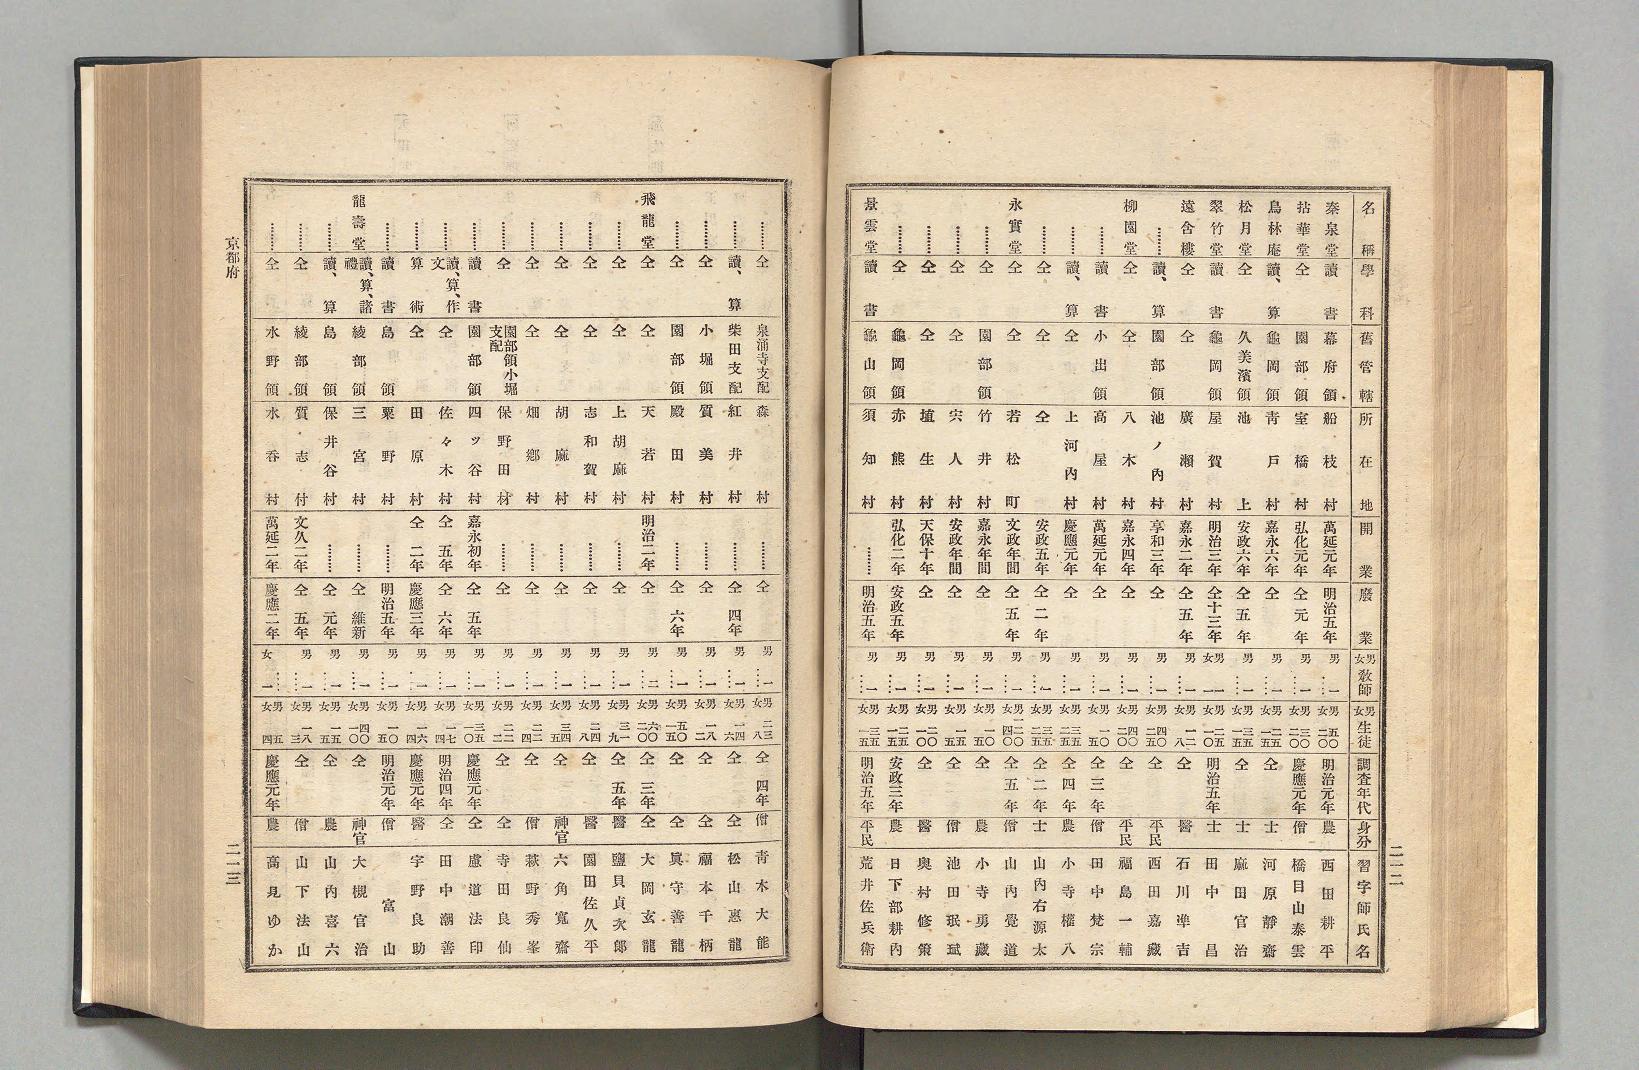 名稱 學科 舊管轄 所在地 開業 廢業 男女敎師 男女生徒 調査年代 身分 習字師氏名
秦泉堂 讀書 幕府領 船枝村 萬延元年 明治五年 男一 男五〇女二〇 明治元年 農 西田耕平
拈華堂 仝 園部領 室橋村 弘化元年 仝元年 男一 男三〇女二〇 慶應元年 僧 橋目山泰雲
鳥林庵 讀、算 龜岡領 靑戶村 嘉永六年 仝 男一 男二五女一五 仝 士 河原靜齋
松月堂 仝 久美濱領 池上 安政六年 仝五年 男一 男三五女一五 仝 士 麻田官治
翠竹堂 讀書 龜岡領 屋賀村 明治三年 仝十三年 男一女一 男二五女一〇 明治五年 士 田中昌
遠舍樓 仝 仝 廣瀨村 嘉永二年 仝五年 男一 男一二女八 仝 醫 石川準吉
……… 讀、算 園部領 池ノ內村 享和三年 仝 男一 男四〇女二五 仝 平民 西田嘉藏
柳園堂 仝 仝 八木村 嘉永四年 仝 男一 男四〇女二〇 仝 平民 福島一輔
……… 讀書 小出領 高屋村 萬延元年 仝 男一 男一〇女五 仝三年 僧 田中梵宗
……… 讀、算 仝 上河內村 慶應元年 仝 男一 男三五女二五 仝四年 農 小寺權八
……… 仝 仝 仝 安政五年 仝二年 男一 男三五女二五 仝二年 士 山內右源太
永實堂 仝 仝 若松町 文政年間 仝五年 男一 仝五年 僧 山內覺道
……… 仝 園部領 竹井村 嘉永年間 仝 男一 男一〇女五 仝 農 小寺勇藏
……… 仝 仝 宍人村 安政年間 仝 男一 男一五女五 仝 僧 池田珉珷
……… 仝 仝 埴生村 天保十年 仝 男一 男二〇女一〇 仝 醫 奧村修策
……… 仝 龜岡領 赤熊村 弘化二年 安政五年 男一 男二五女一五 安政三年 農 日下部耕內
景雲堂 讀書 龜山領 須知村 ……… 明治五年 男一 男三五女一五 明治五年 平民 荒井佐兵衛
二一二
……… 仝 泉涌寺支配 森村 ……… 仝 男一 男二三女八 仝四年 僧 靑木大能
……… 讀、算 柴田支配 紅井村 ……… 仝四年 男一 男一四女六 仝 仝 松山惠龍
……… 仝 小堀領 質美村 ……… 仝 男一 男一八女二 仝 仝 福本千柄
……… 仝 園部領 殿田村 ……… 仝六年 男一 男五〇女一五 仝 仝 眞守善龍
飛龍堂 仝 仝 天若村 明治二年 仝 男二 男六〇女二〇 仝三年 仝 大岡玄龍
……… 仝 仝 上胡麻村 ……… 仝 男一 男三一女九 仝五年 醫 鹽貝貞次郞
……… 仝 仝 志和賀村 ……… 仝 男一 男二四女八 仝 醫 園田佐久平
……… 仝 仝 胡麻村 ……… 仝 男一 男三四女五 仝 神官 六角寬齋
……… 仝 仝 畑鄕村 ……… 仝 男一 男二二女四 仝 僧 萩野秀峯
……… 仝 園部領小堀支配 保野田村 ……… 仝 男一 男二二女二 仝 仝 寺田良仙
……… 讀書 園部領 四ツ谷村 嘉永初年 仝五年 男一 男三五女一〇 慶應元年 仝 盧道法印
……… 讀、算、作文 仝 佐々木村 仝五年 仝六年 男一 男一七女四 明治四年 仝 田中潮善
……… 算術 仝 田原村 仝二年 慶應三年 男一 男一六女四 慶應元年 醫 宇野良助
……… 讀書 島領 粟野村 ……… 明治五年 男一 男一〇女五 明治元年 僧 富山
龍壽堂 讀、算、諸禮 綾部領 三宮村 ……… 仝維新 男一 男四〇女一〇 仝 神官 大槻官治
……… 讀、算 島領 保井谷村 ……… 仝元年 男一 男一五女五 仝 農 山內喜六
……… 仝 綾部領 質志村 文久二年 仝五年 男一 男一八女三 仝 僧 山下法山
……… 仝 水野領 水呑村 萬延二年 慶應二年 女一 男五女四 慶應元年 農 高見ゆか
京都府
二一三